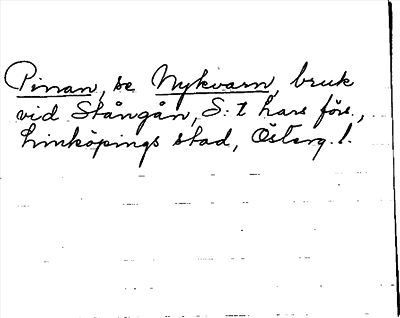 Pinan, se Nykvarn, bruk
vid Stångån, S:t Lars förs.,
Linköpings stad, Österg. l.